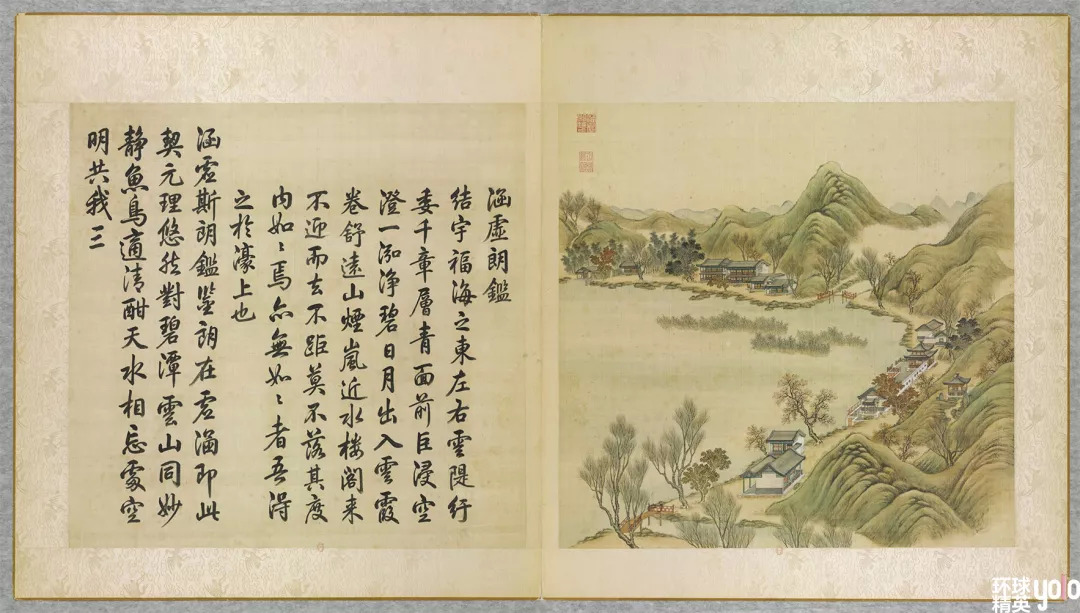 涵虛朗鑑
結宇福海之東左右雲隄紆
委千章層青面前巨浸空
澄一泓淨碧日月出入雲霞
卷舒遠山煙嵐近水樓閣来
不迎而去不距莫不落其度
内如〻焉亦無如〻者吾得
之於濠上也
涵虚斯朗鑑鑒朗在虚涵即此
契元理悠然對碧潭雲山同妙
静魚鳥適清酣天水相忘處空
明共我三
环球
精英
yolo